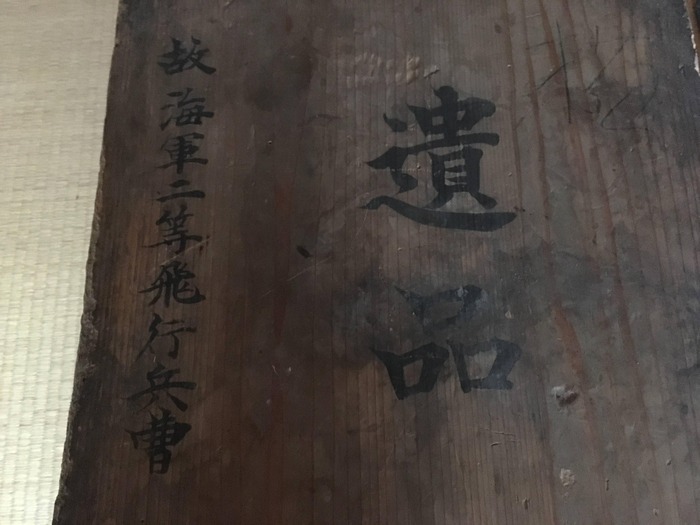 遺品
故海軍二等飛行兵曹